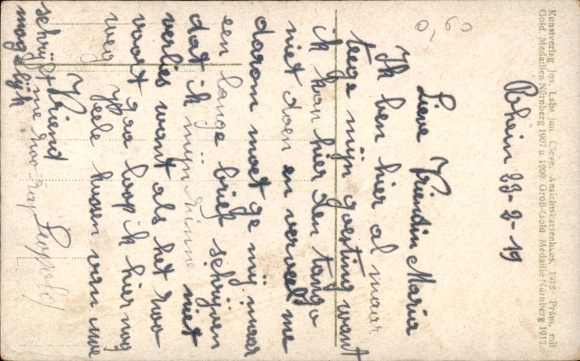 Kunstverlag Jos. Labs jun. Cleve. Ansichtskartenhaus. 1918 Präm. mit
Gold. Medaillen Nürnberg 1907 u. 1909 Groß-Gold. Medaille Nürnberg 1912.
Rhein 23-2-19
Lieve Vriendin Maria
Ik ben hier al maar
teege mijn goesting want
ik kan hier den tango
niet doen en verveel me
darom moet ge mij maar
een lange brief schrijven
dat ik mijn niet
verlies want als het zoo
voort gaa loop ik hier nog
weg Veele kussen van uwe
Vriend Leopold
schrijft me zoo rap
mogelijk